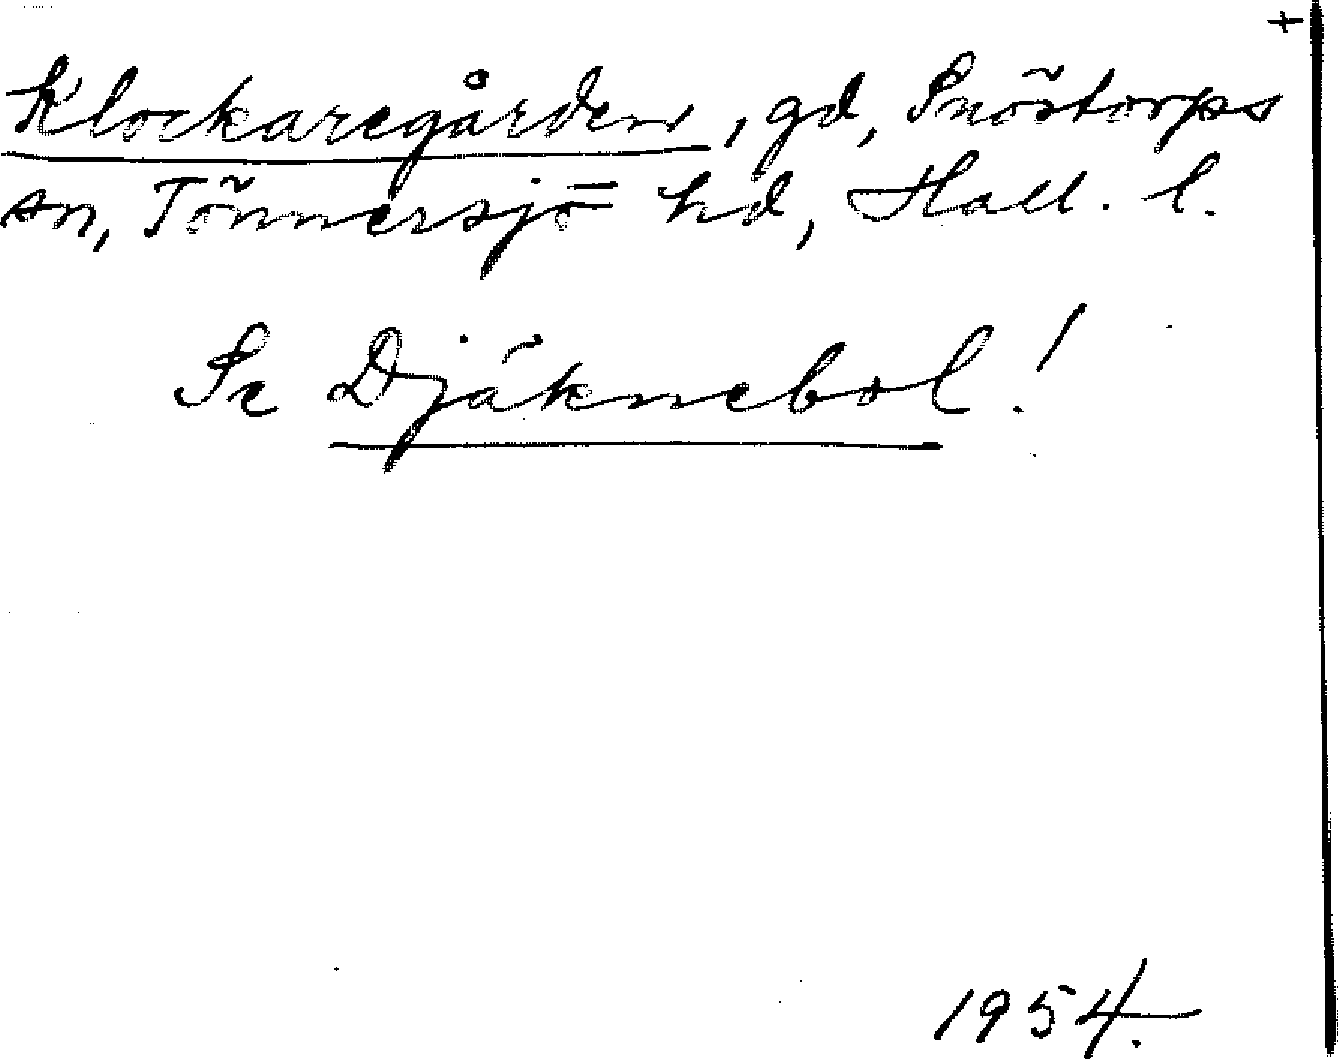 +
Klockaregården, gd, Snöstorps
sn, Tönnersjö hd, Hall. l.
Se Djäknebol!
1954.